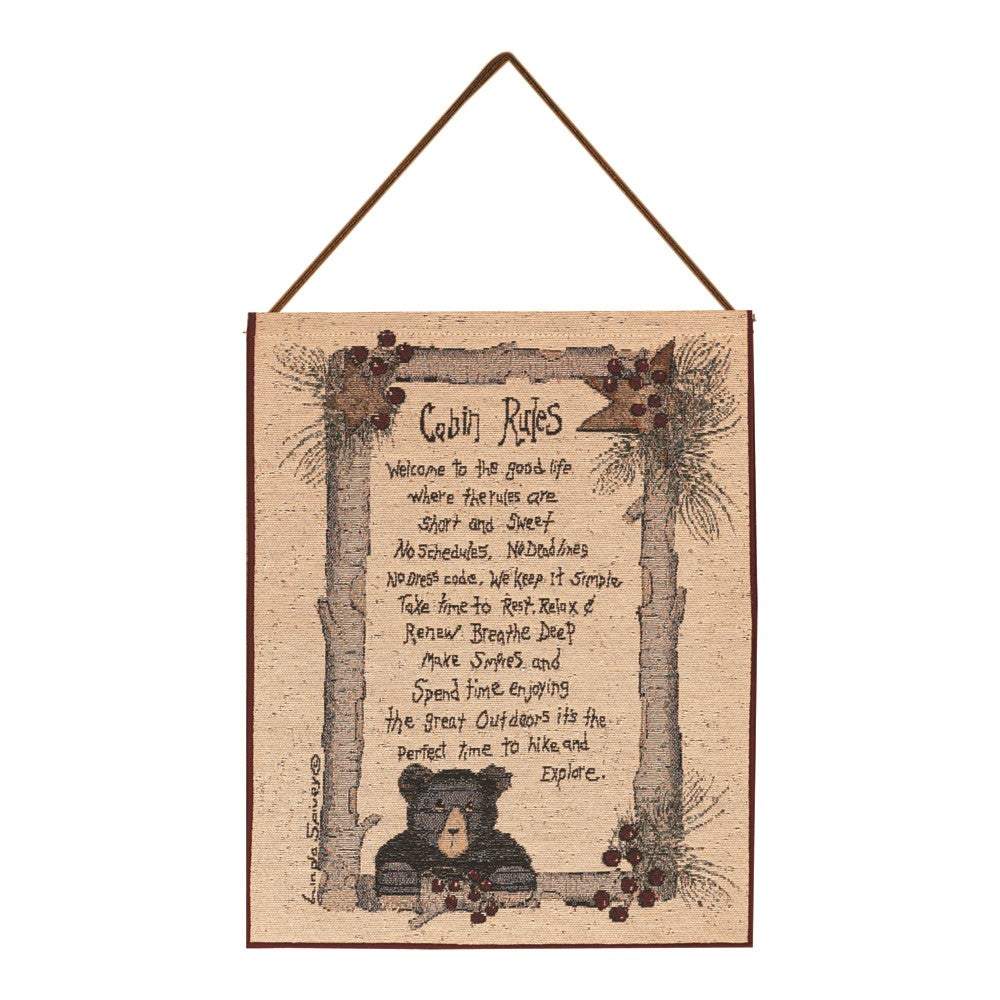 Cabin Rules
Welcome to the good life
where the rules are
short and sweet
No schedules, No Deadlines
No Dress code, We keep It simple
Take time to Rest, Relax &
Renew Breathe Deep
Make Smiles and
Spend time enjoying
the great Outdoors it's the
Perfect time to hike and
Explore.
Linda Spivey ©